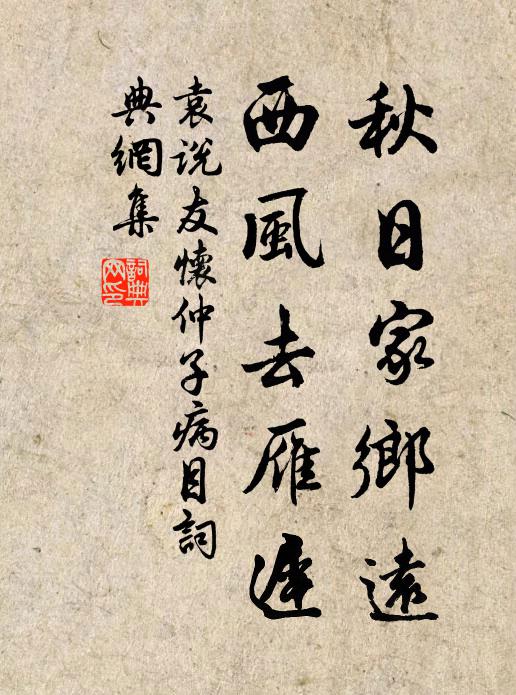 秋日家鄉遠
西風去雁遲
袁說友懷仲子病目詞
典網集
詞典
网印